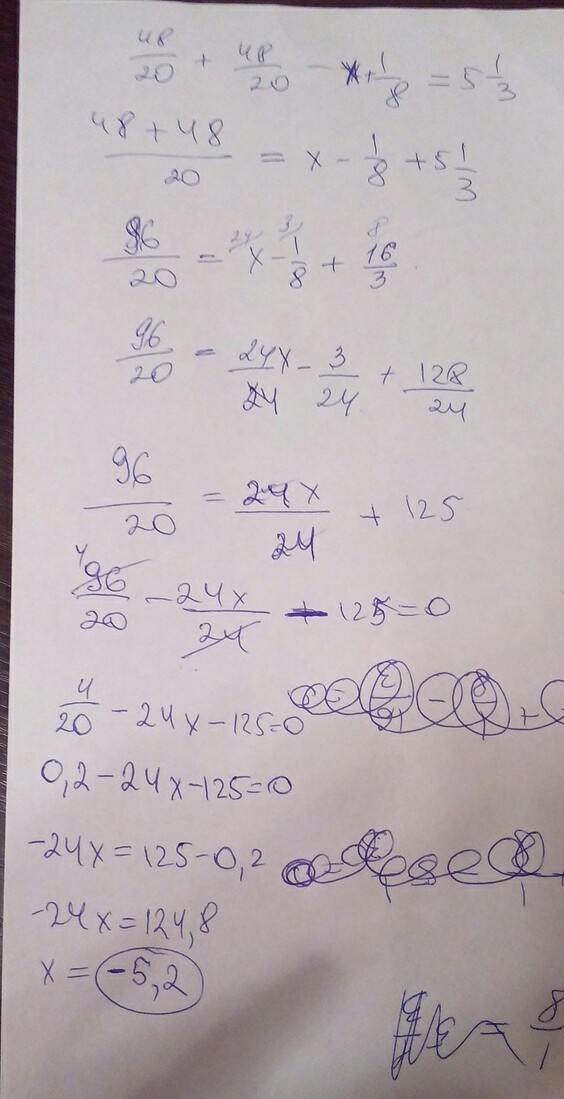 48/20 + 48/20 - x + 1/8 = 5 1/3
48 + 48/20 = x - 1/8 + 5 1/3
96/20 = 24/ x - 3/ 1/8 + 8/ 16/3
96/20 = 24x/24 - 3/24 + 128/24
96/20 = 24x/24 + 125
4 96/20 - 24x/24 - 125 = 0
4/20 - 24x - 125 = 0
0,2 - 24x - 125 = 0
-24x = 125 - 0,2
-24x = 124,8
x = -5,2
= 8/1